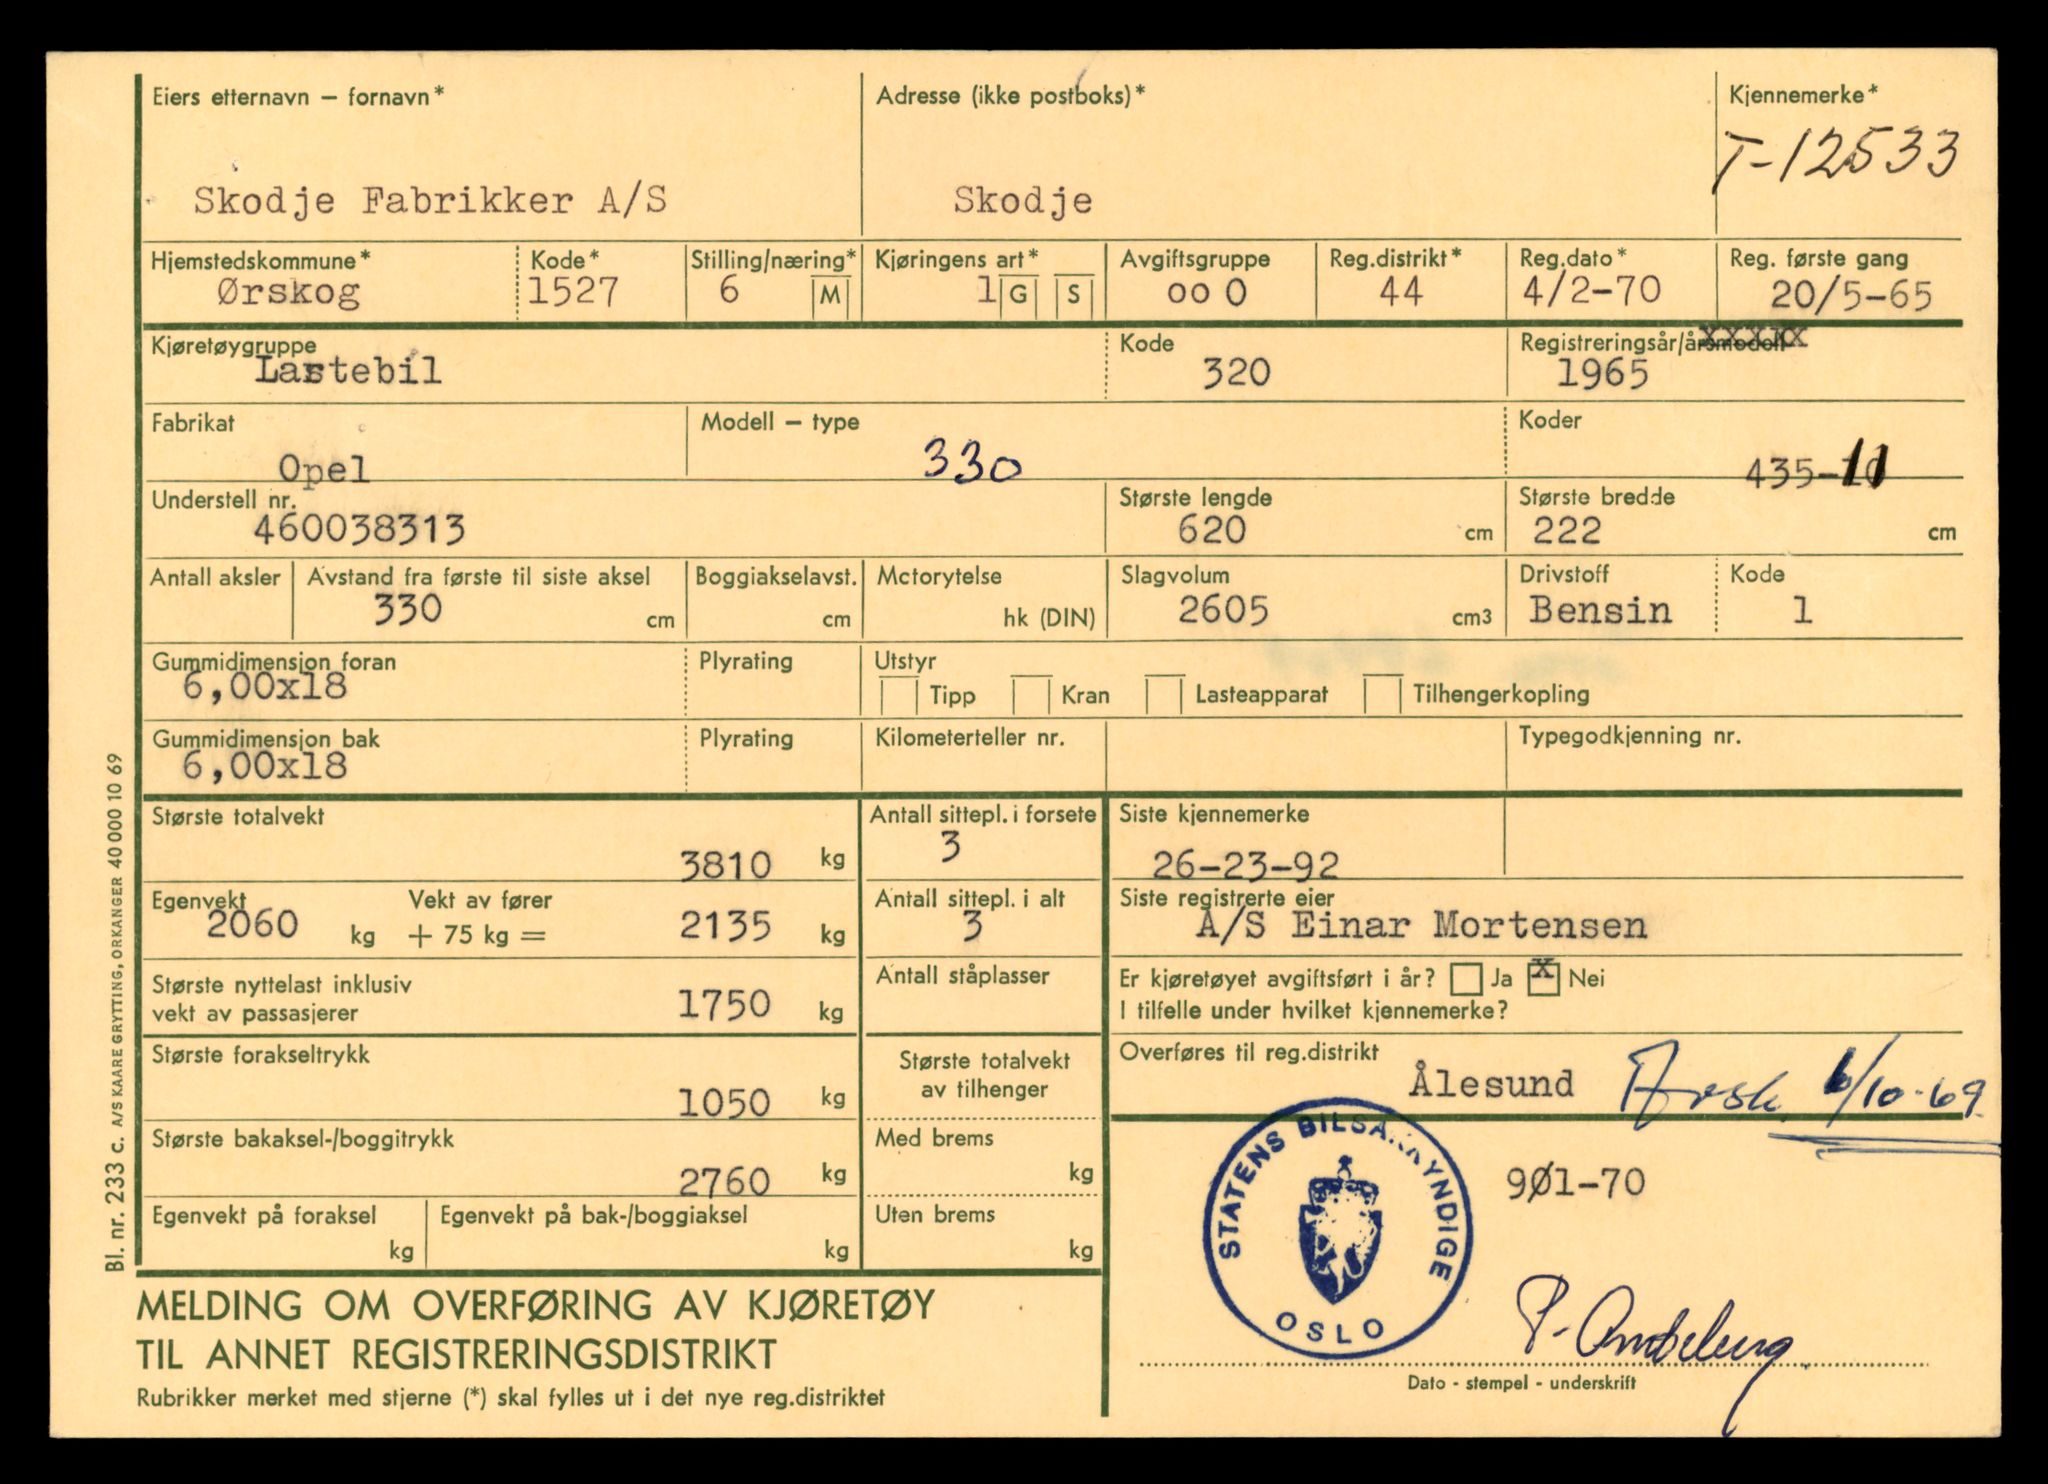 Eiers etternavn – fornavn*
Adresse (ikke postboks)*
Kjennemerke*
T-12533
Skodje Fabrikker A/S
Skodje
Hjemstedskommune*
Kode*
Stilling/næring*
Kjøringens art*
Avgiftsgruppe
Reg.distrikt*
Reg.dato*
Reg. første gang
Ørskog
1527
6 M
1 G S
oo O
44
4/2-70
20/5-65
Kjøretøygruppe
Kode
Registreringsår/årsmodell
Lastebil
320
1965
Fabrikat
Modell – type
Koder
Opel
330
435-11
Understell nr.
Største lengde
Største bredde
460038313
620 cm
222 cm
Antall aksler
Avstand fra første til siste aksel
Boggiakselavst.
Motorytelse
Slagvolum
Drivstoff
Kode
330 cm
cm
hk (DIN)
2605 cm3
Bensin
1
Gummidimensjon foran
Plyrating
Utstyr
6,00x18
Tipp
Kran
Lasteapparat
Tilhengerkopling
Gummidimensjon bak
Plyrating
Kilometerteller nr.
Typegodkjenning nr.
6,00x18
Største totalvekt
3810 kg
Antall sittepl. i forsete
3
Siste kjennemerke
26-23-92
Egenvekt
2060 kg
Vekt av fører
+ 75 kg =
2135 kg
Antall sittepl. i alt
3
Siste registrerte eier
A/S Einar Mortensen
Største nyttelast inklusiv
vekt av passasjerer
1750 kg
Antall ståplasser
Er kjøretøyet avgiftsført i år? Ja x Nei
I tilfelle under hvilket kjennemerke?
Største forakseltrykk
1050 kg
Største totalvekt
av tilhenger
Overføres til reg.distrikt
Ålesund
6/10-69
Største bakaksel-/boggitrykk
2760 kg
Med brems
kg
STATENS BILSAKKYNDIGE
OSLO
9Ø1-70
Egenvekt på foraksel
kg
Egenvekt på bak-/boggiaksel
kg
Uten brems
kg
MELDING OM OVERFØRING AV KJØRETØY
TIL ANNET REGISTRERINGSDISTRIKT
Rubrikker merket med stjerne (*) skal fylles ut i det nye reg.distriktet
Dato - stempel - underskrift
Bl. nr. 233 c. A/S KAARE GRYTTING, ORKANGER 40 000 10 69